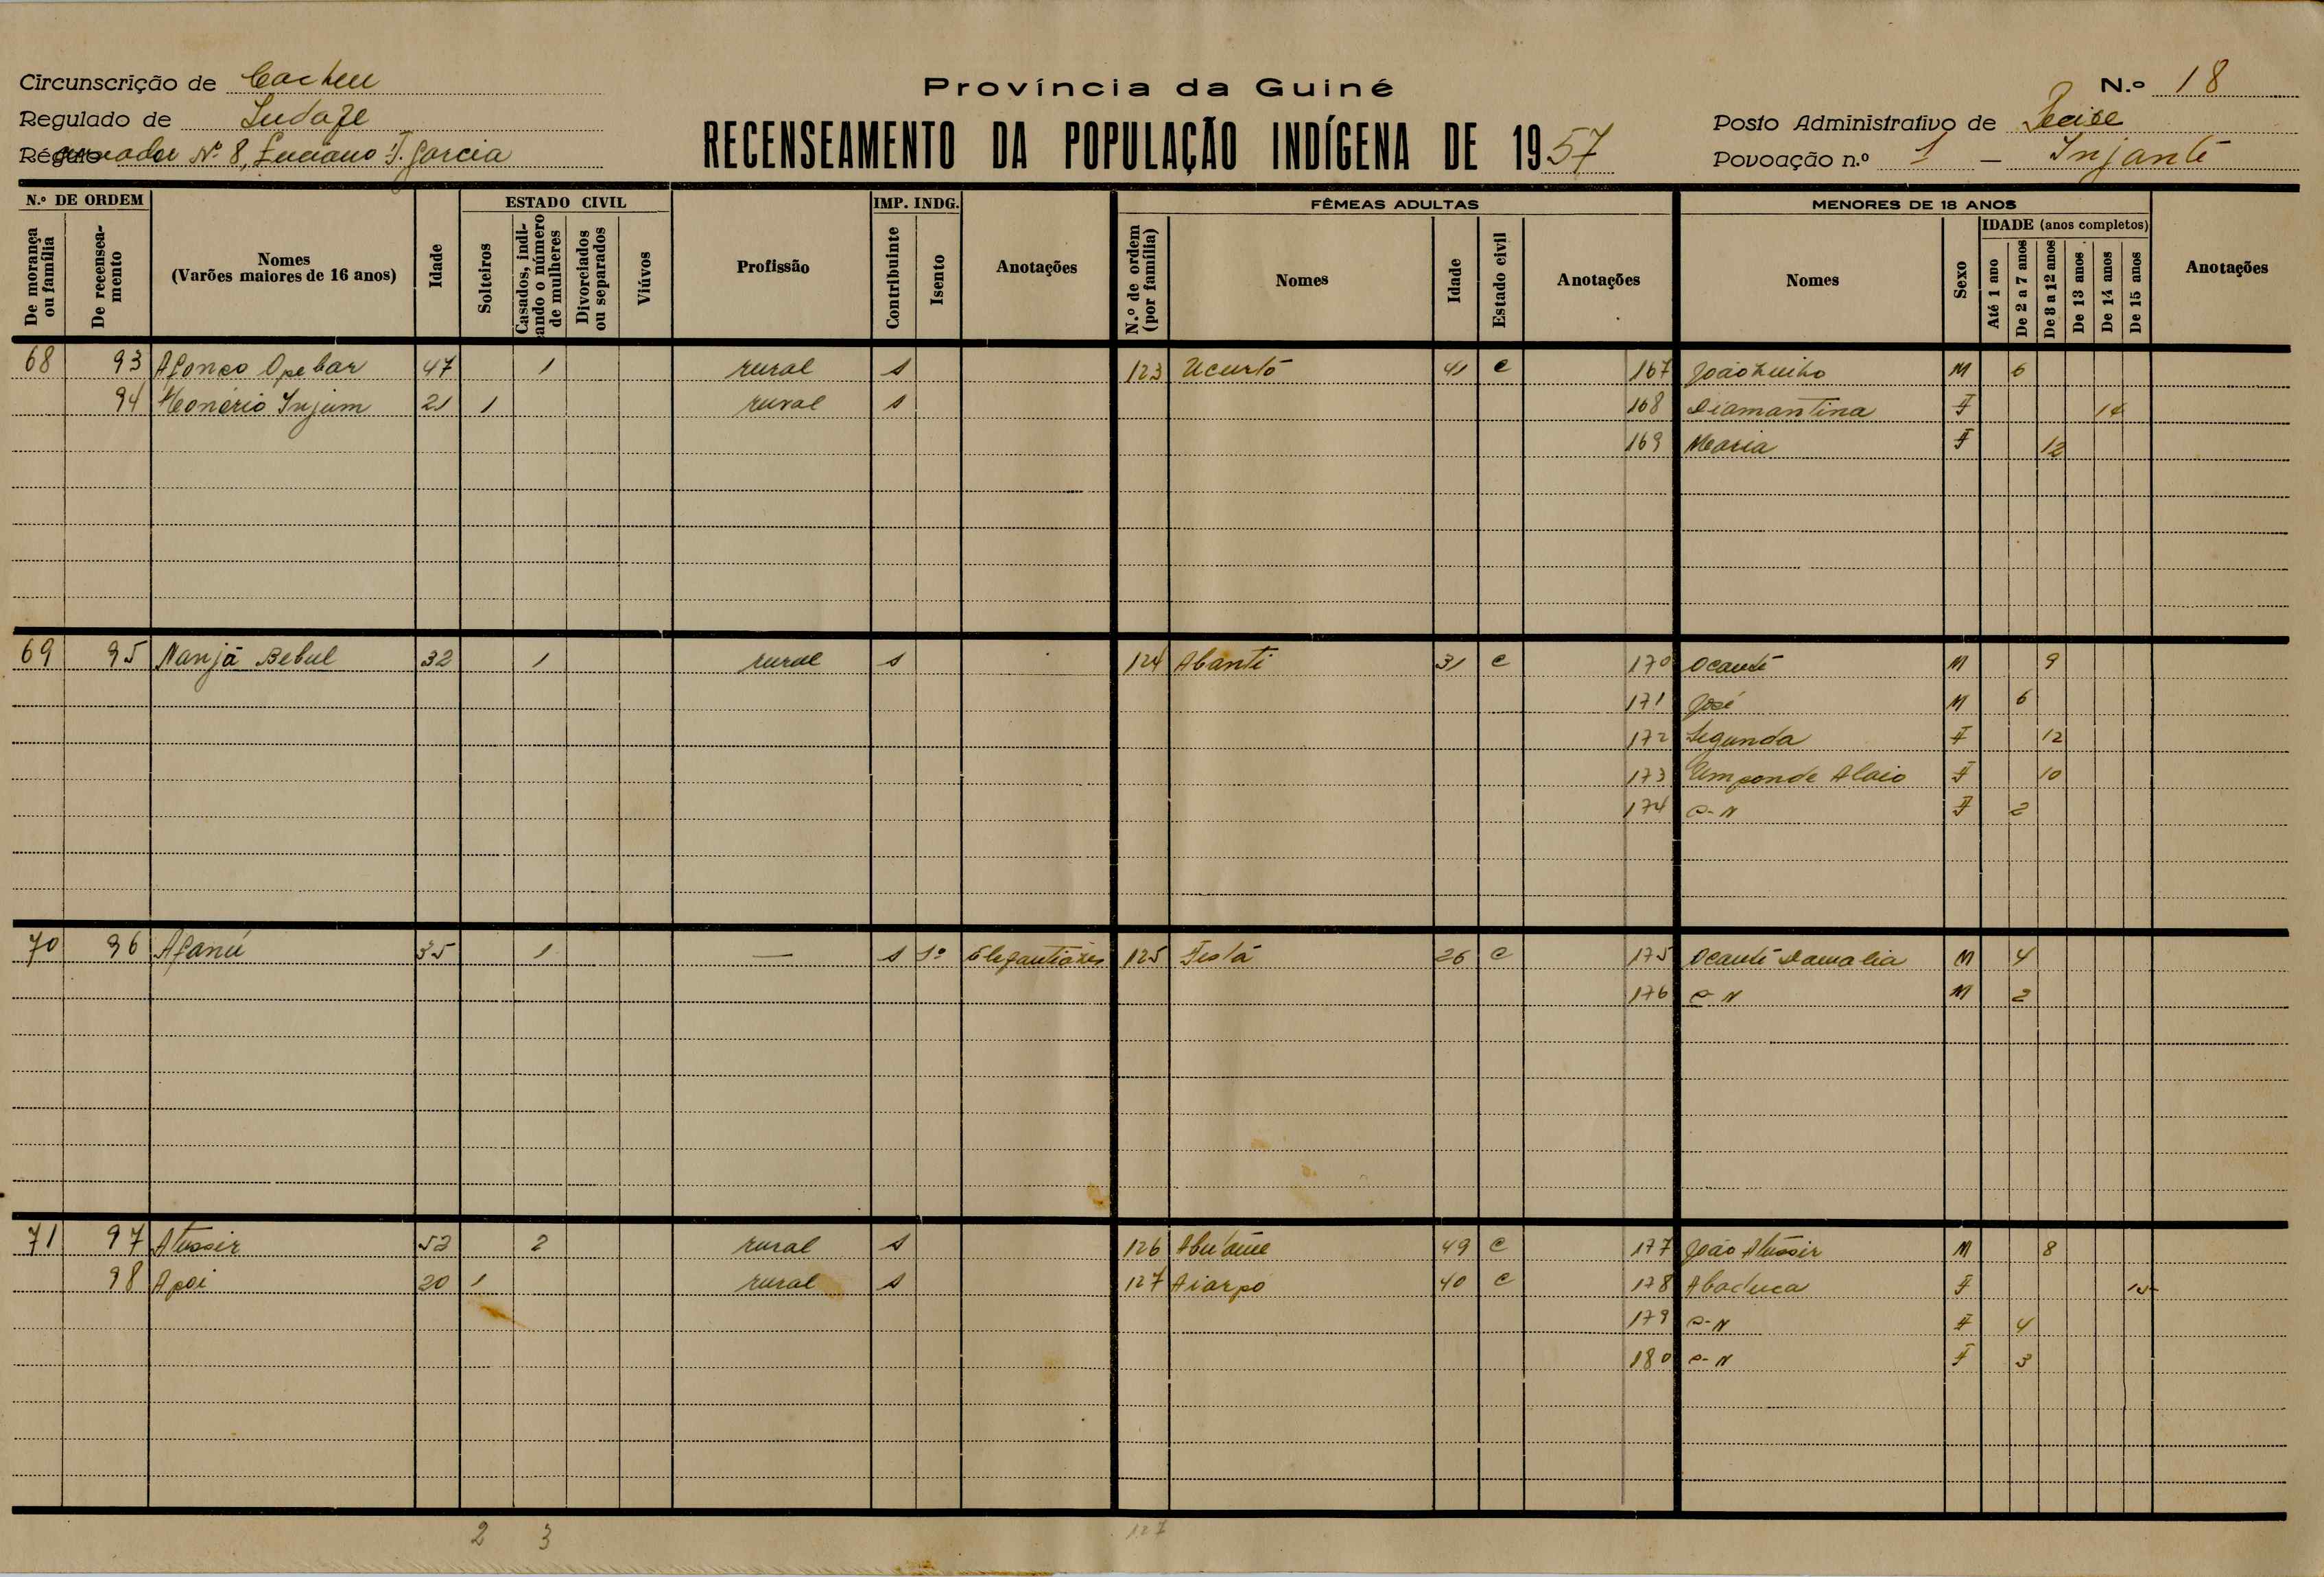 Circunscrição de Cacheu
Província da Guiné
N.º 18
Regulado de
Posto Administrativo de Pecixe
RECENSEAMENTO DA POPULAÇÃO INDÍGENA DE 1957
Régulo Nº 8, Luciano T. Garcia
Povoação n.º 1 – Injanté
N.º DE ORDEM
ESTADO CIVIL
IMP. INDG.
FÊMEAS ADULTAS
MENORES DE 18 ANOS
IDADE (anos completos)
De morança ou família
De recenseamento
Nomes
(Varões maiores de 16 anos)
Idade
Solteiros
Casados, indicando o número de mulheres
Divorciados ou separados
Viúvos
Profissão
Contribuinte
Isento
Anotações
N.º de ordem (por família)
Nomes
Idade
Estado civil
Anotações
Nomes
Sexo
Até 1 ano
De 2 a 7 anos
De 8 a 12 anos
De 13 anos
De 14 anos
De 15 anos
Anotações
68 93 Afonso Opebar 47 1 rural s 123 Ucurtó 41 C 167 João M 6
94 Honório Injum 21 1 rural s 168 Diamantina F 14
169 Maria F 12
69 95 Nanjá Bebul 32 1 rural s 124 Abanti 31 C 170 Ocanté M 9
171 José M 6
172 Segunda F 12
173 Umponde Alaio F 10
174 S-N F 2
70 96 Afanú 35 1 — s 125 Testá 26 C 175 Ocanté Damalia M 4
176 S-N M 2
71 97 Atussir 52 2 rural s 126 49 C 177 João Atússir M 8
98 Apoi 20 1 rural s 127 Aiarpó 40 C 178 Abaduca F 15
179 S-N F 4
180 S-N F 3
2 3 127